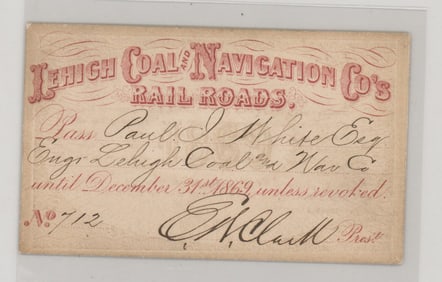 LEHIGH COAL AND NAVIGATION CO'S
RAIL ROADS.
Pass Paul I. White Esq
Engr Lehigh Coal and Nav Co
until December 31st 1869, unless revoked.
No 712 E. W. Clark Prest.